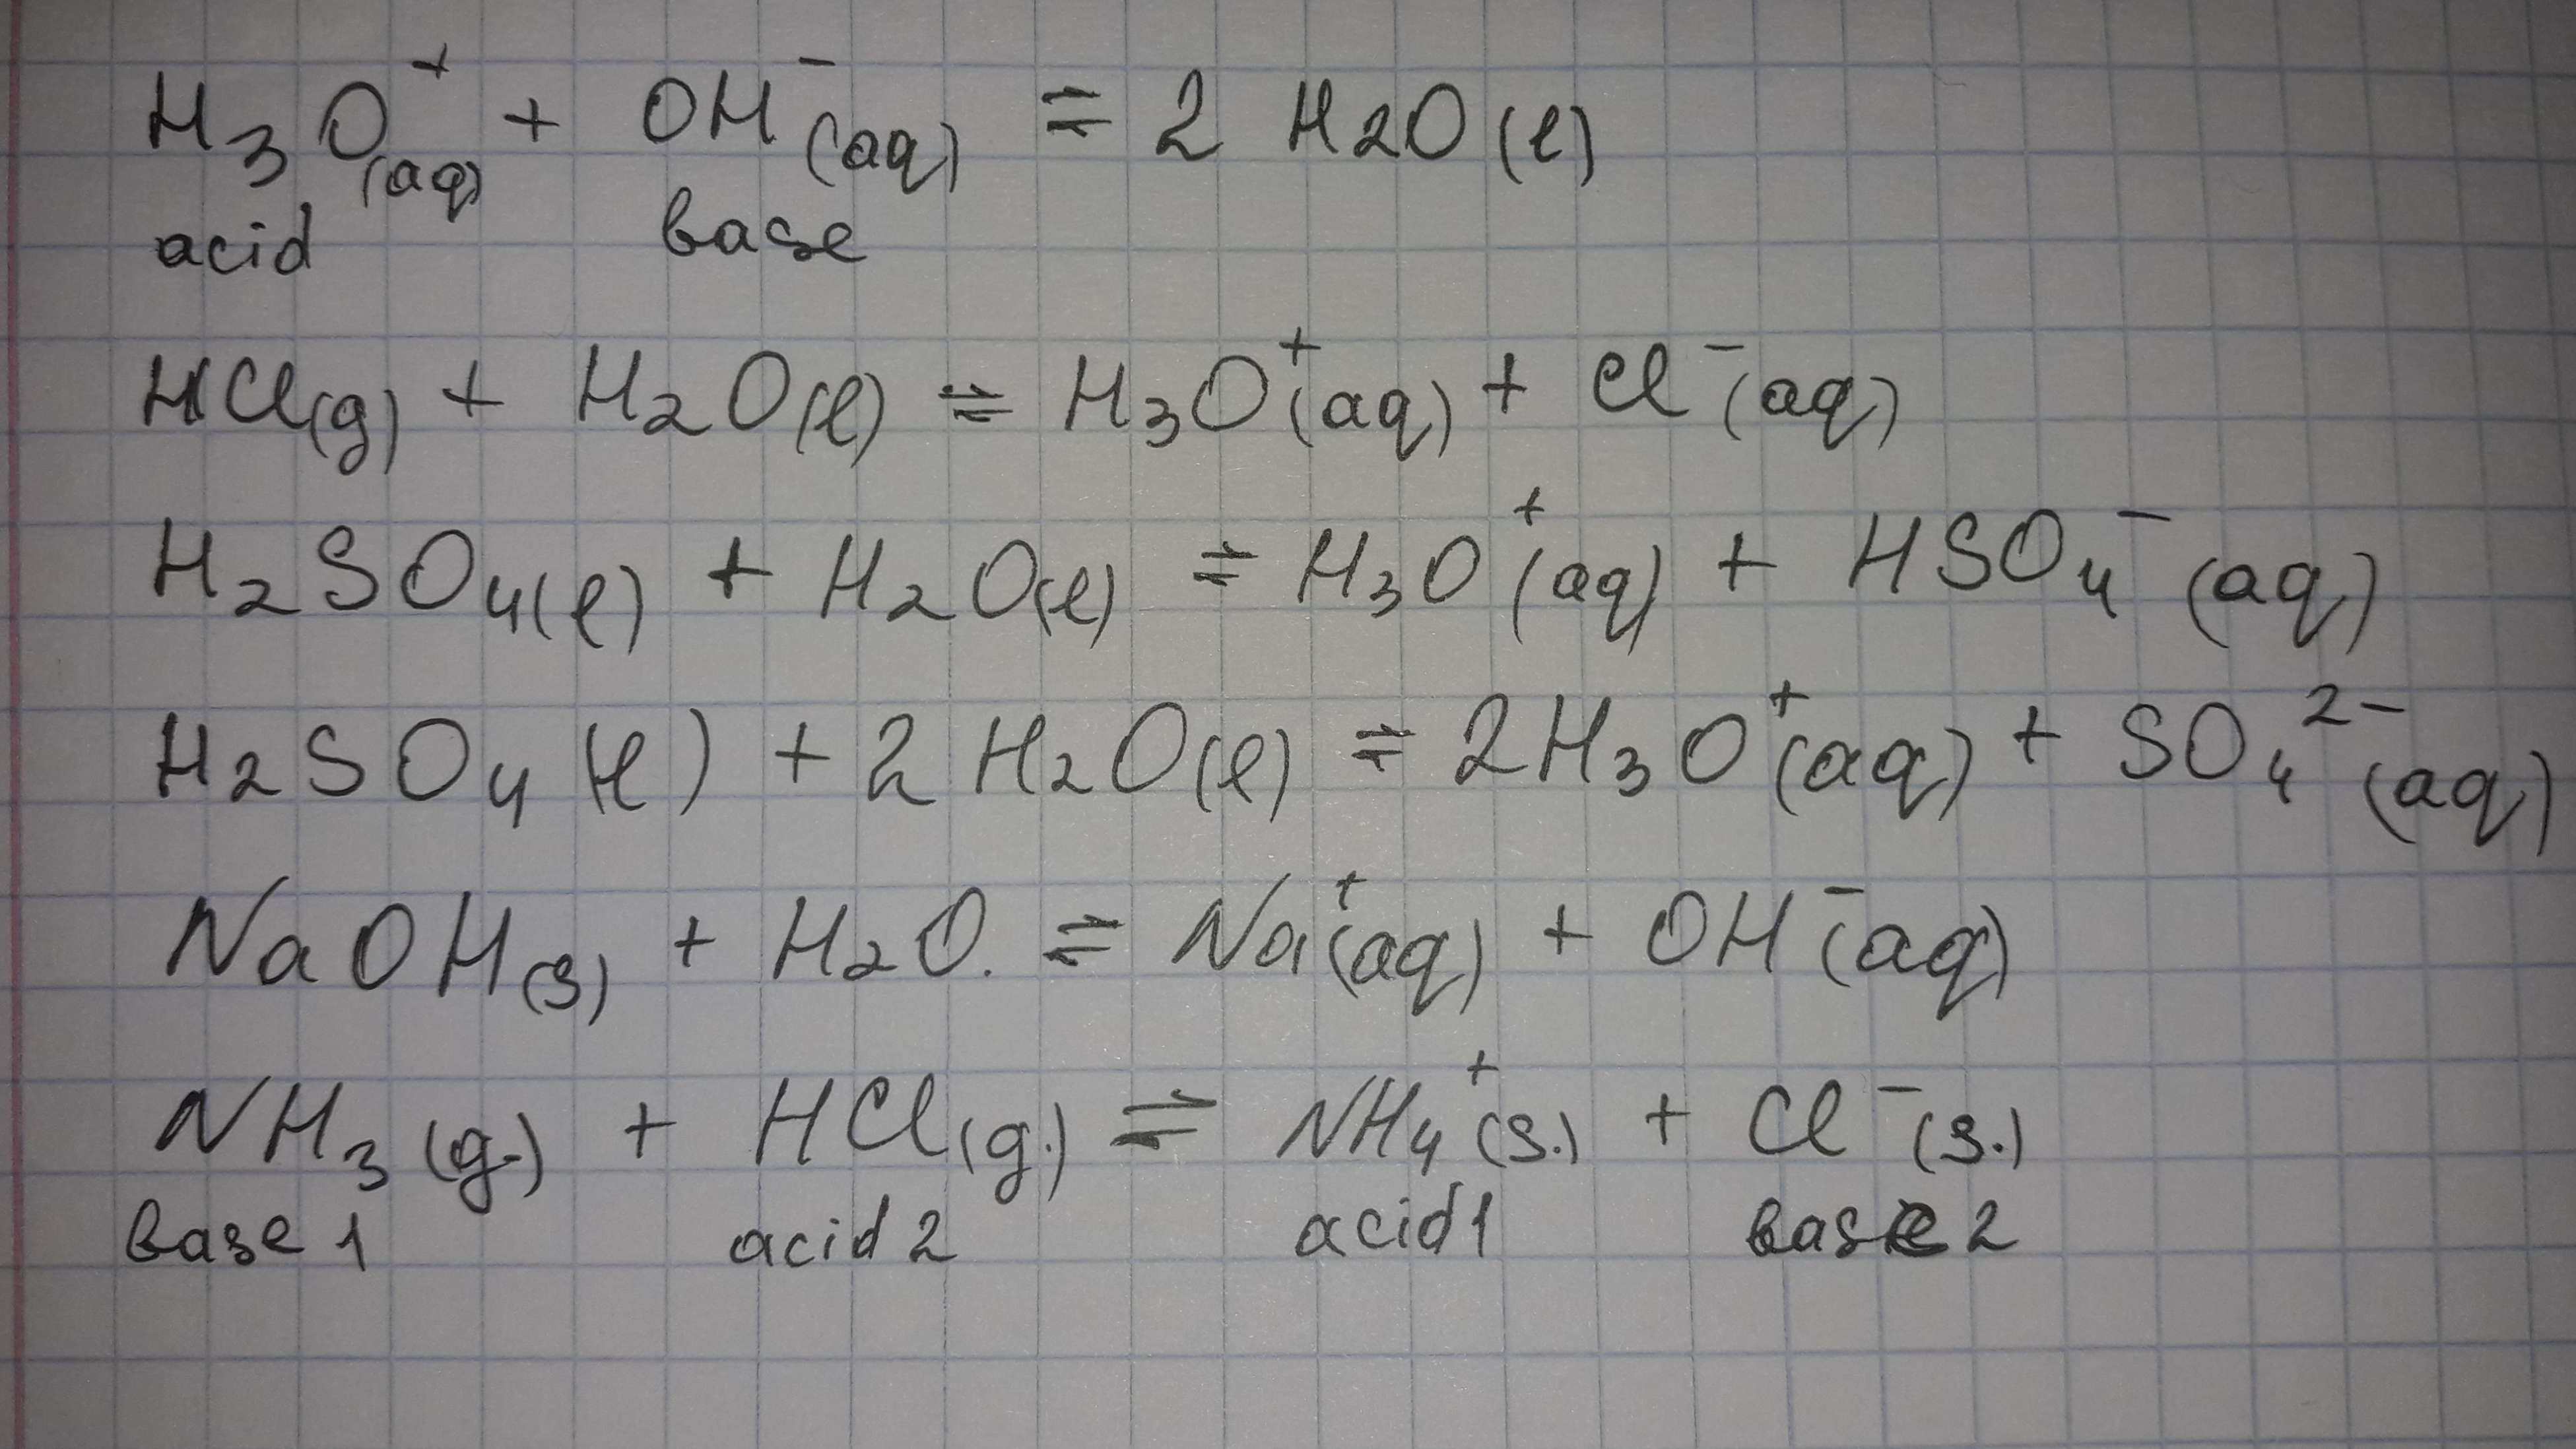 H₃O⁺(aq) + OH⁻(aq) ⇌ 2 H₂O(l)
acid base
HCl(g) + H₂O(l) ⇌ H₃O⁺(aq) + Cl⁻(aq)
H₂SO₄(l) + H₂O(l) ⇌ H₃O⁺(aq) + HSO₄⁻(aq)
H₂SO₄(l) + 2 H₂O(l) ⇌ 2H₃O⁺(aq) + SO₄²⁻(aq)
NaOH(s) + H₂O. ⇌ Na⁺(aq) + OH⁻(aq)
NH₃(g.) + HCl(g.) ⇌ NH₄⁺(s.) + Cl⁻(s.)
base 1 acid 2 acid 1 base 2